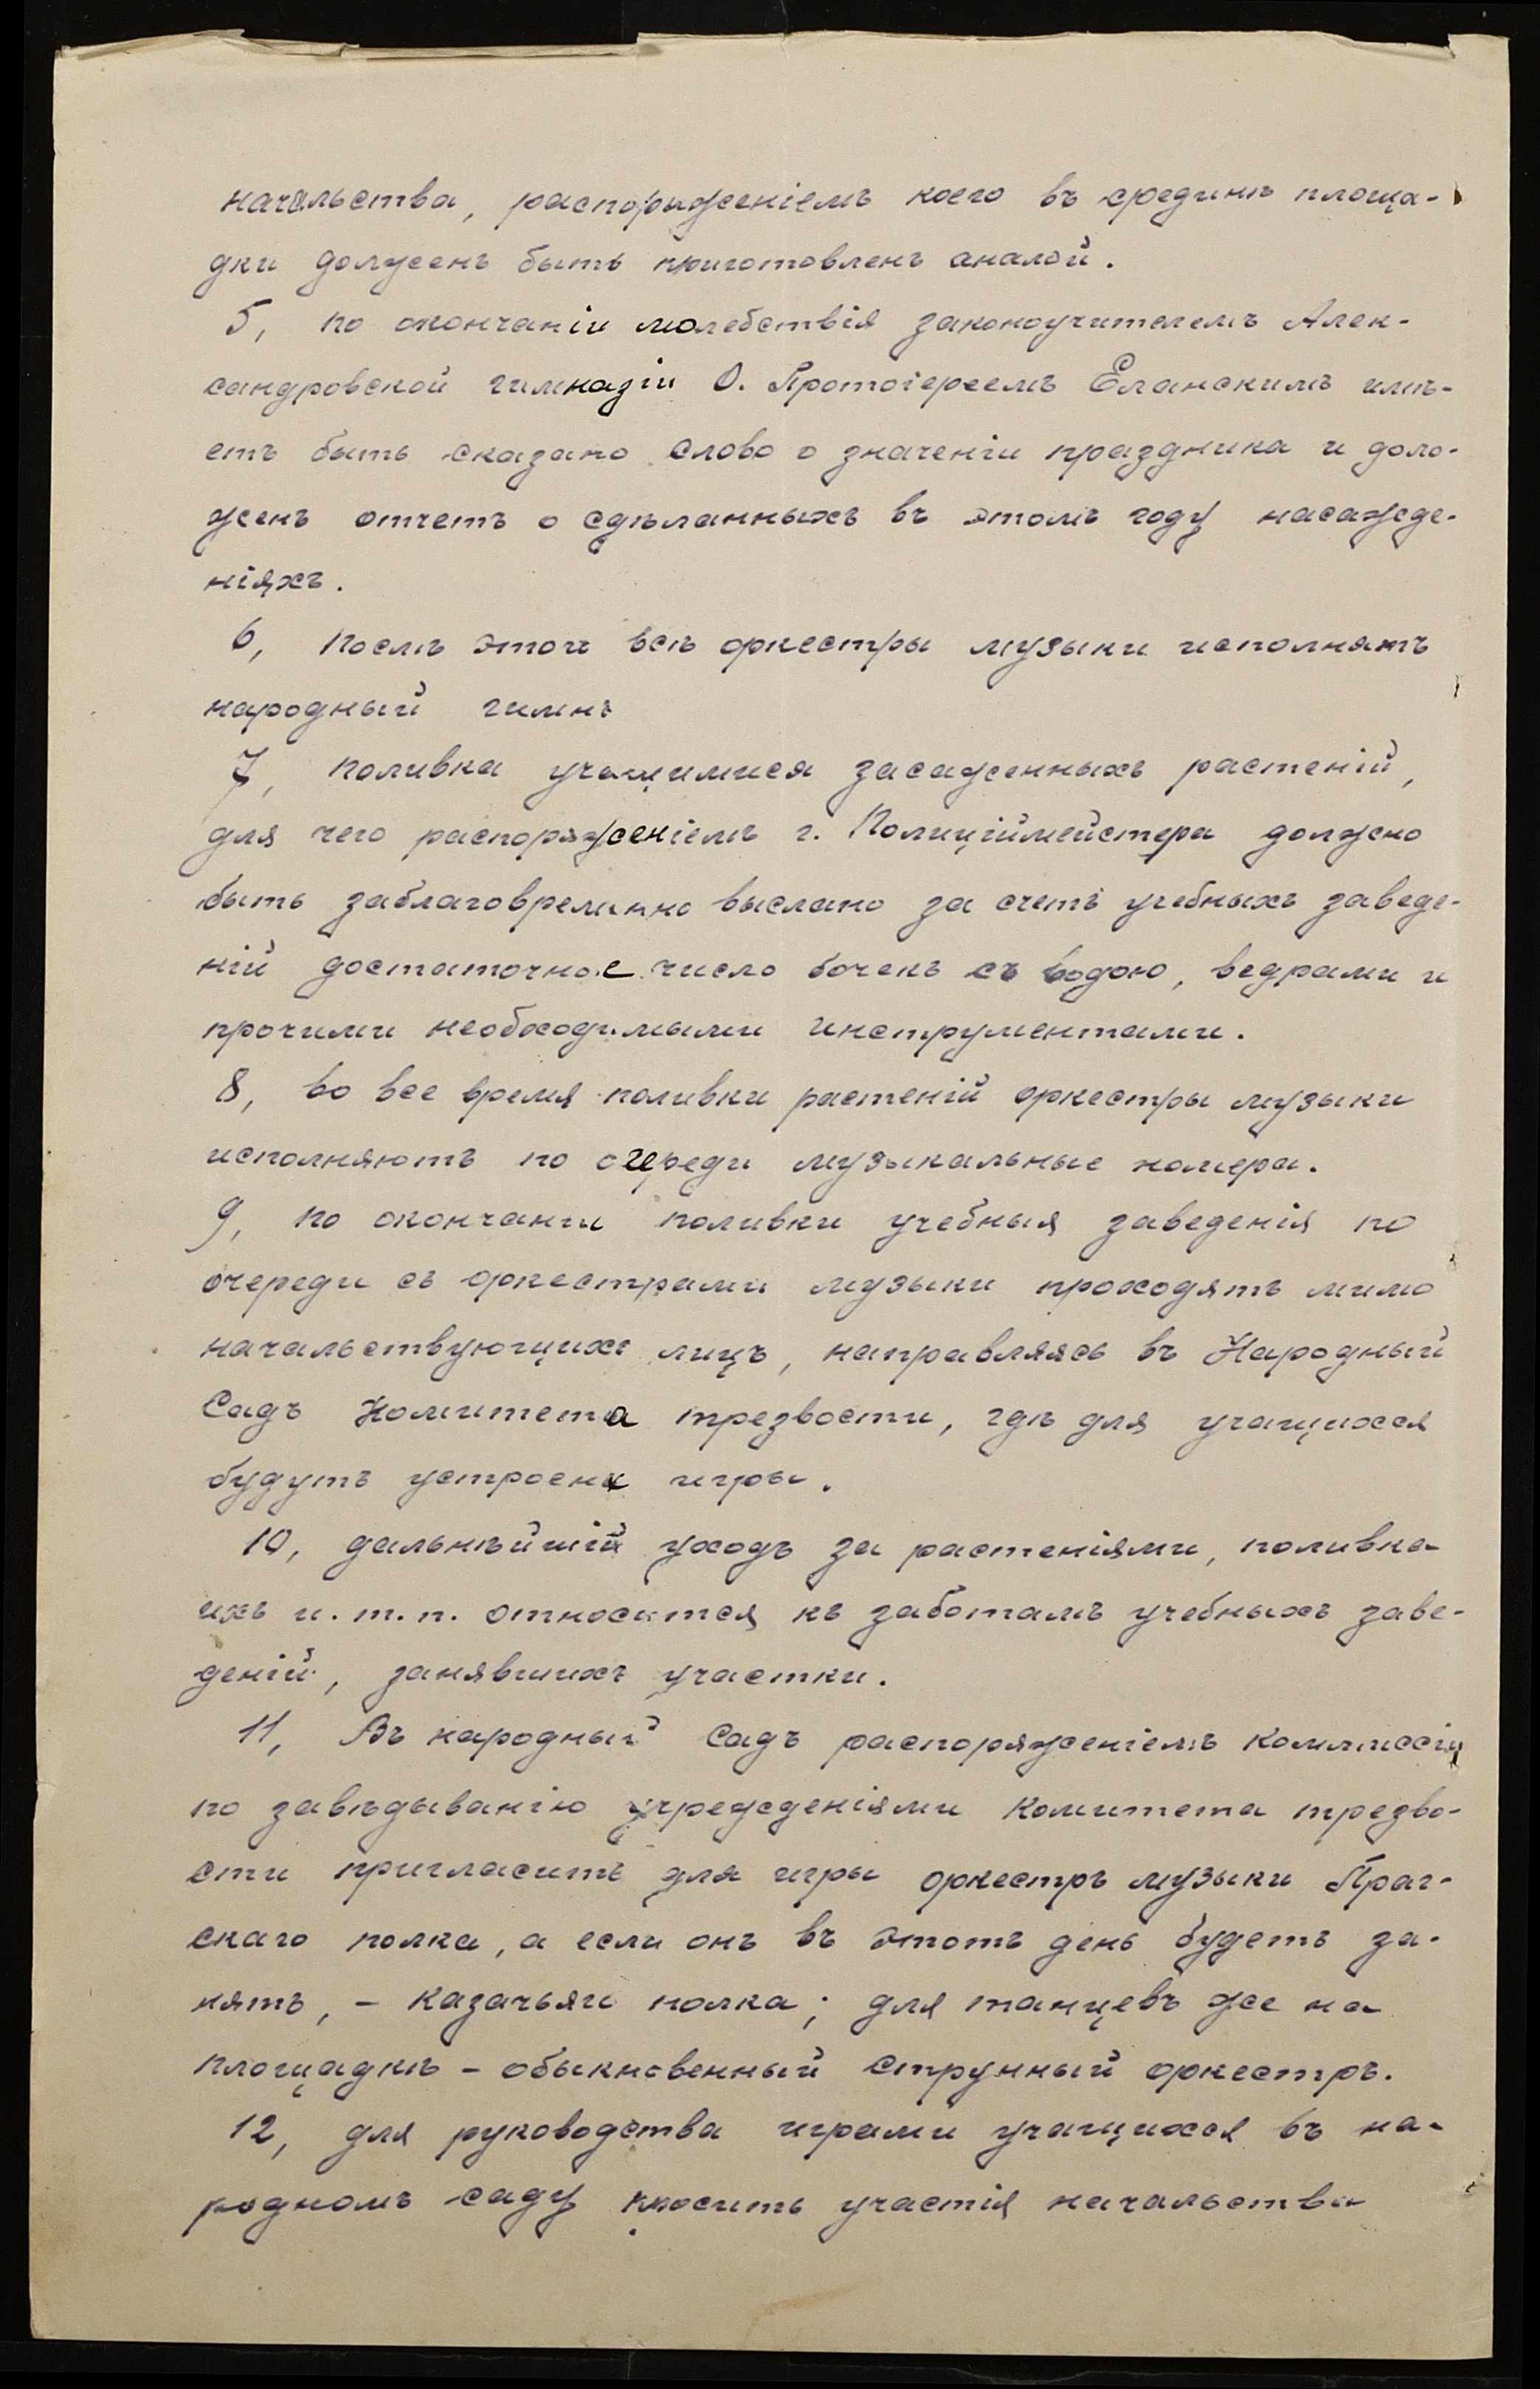 начальства, распоряженіемъ коего въ срединѣ площа-
дки долженъ быть приготовленъ аналой.
5, по окончаніи молебствія законоучителемъ Алек-
сандровской гимназіи О. Протоіереемъ Еланскимъ имѣ-
етъ быть сказано слово о значеніи праздника и доло-
женъ отчетъ о сдѣланныхъ въ этомъ году насажде-
ніяхъ.
6, Послѣ этого всѣ оркестры музыки исполнятъ
народный гимнъ
7, поливка учащимися засаженныхъ растеній,
для чего распоряженіемъ г. Полиціймейстера должно
быть заблаговременно выслано за счетъ учебныхъ заведе-
ній достаточное число бочекъ съ водою, ведрами и
прочими необходимыми инструментами.
8, во все время поливки растеній оркестры музыки
исполняютъ по очереди музыкальные номера.
9, по окончаніи поливки учебныя заведенія по
очереди съ оркестрами музыки проходятъ мимо
начальствующихъ лицъ, направляясь въ Народный
Садъ Комитета трезвости, гдѣ для учащихся
будутъ устроены игры.
10, дальнѣйшій уходъ за растеніями, поливка
ихъ и. т. п. относится къ заботамъ учебныхъ заве-
деній, занявшихъ участки.
11, Въ народный Садъ распоряженіемъ Коммиссіи
по завѣдыванію учрежденіями Комитета трезво-
сти пригласить для игры оркестръ музыки Праг-
скаго полка, а если онъ въ этотъ день будетъ за-
нятъ, - казачьяго полка; для танцевъ же на
площадкѣ - обыкновенный струнный оркестръ.
12, для руководства играми учащихся въ на-
родномъ саду просить участія начальства